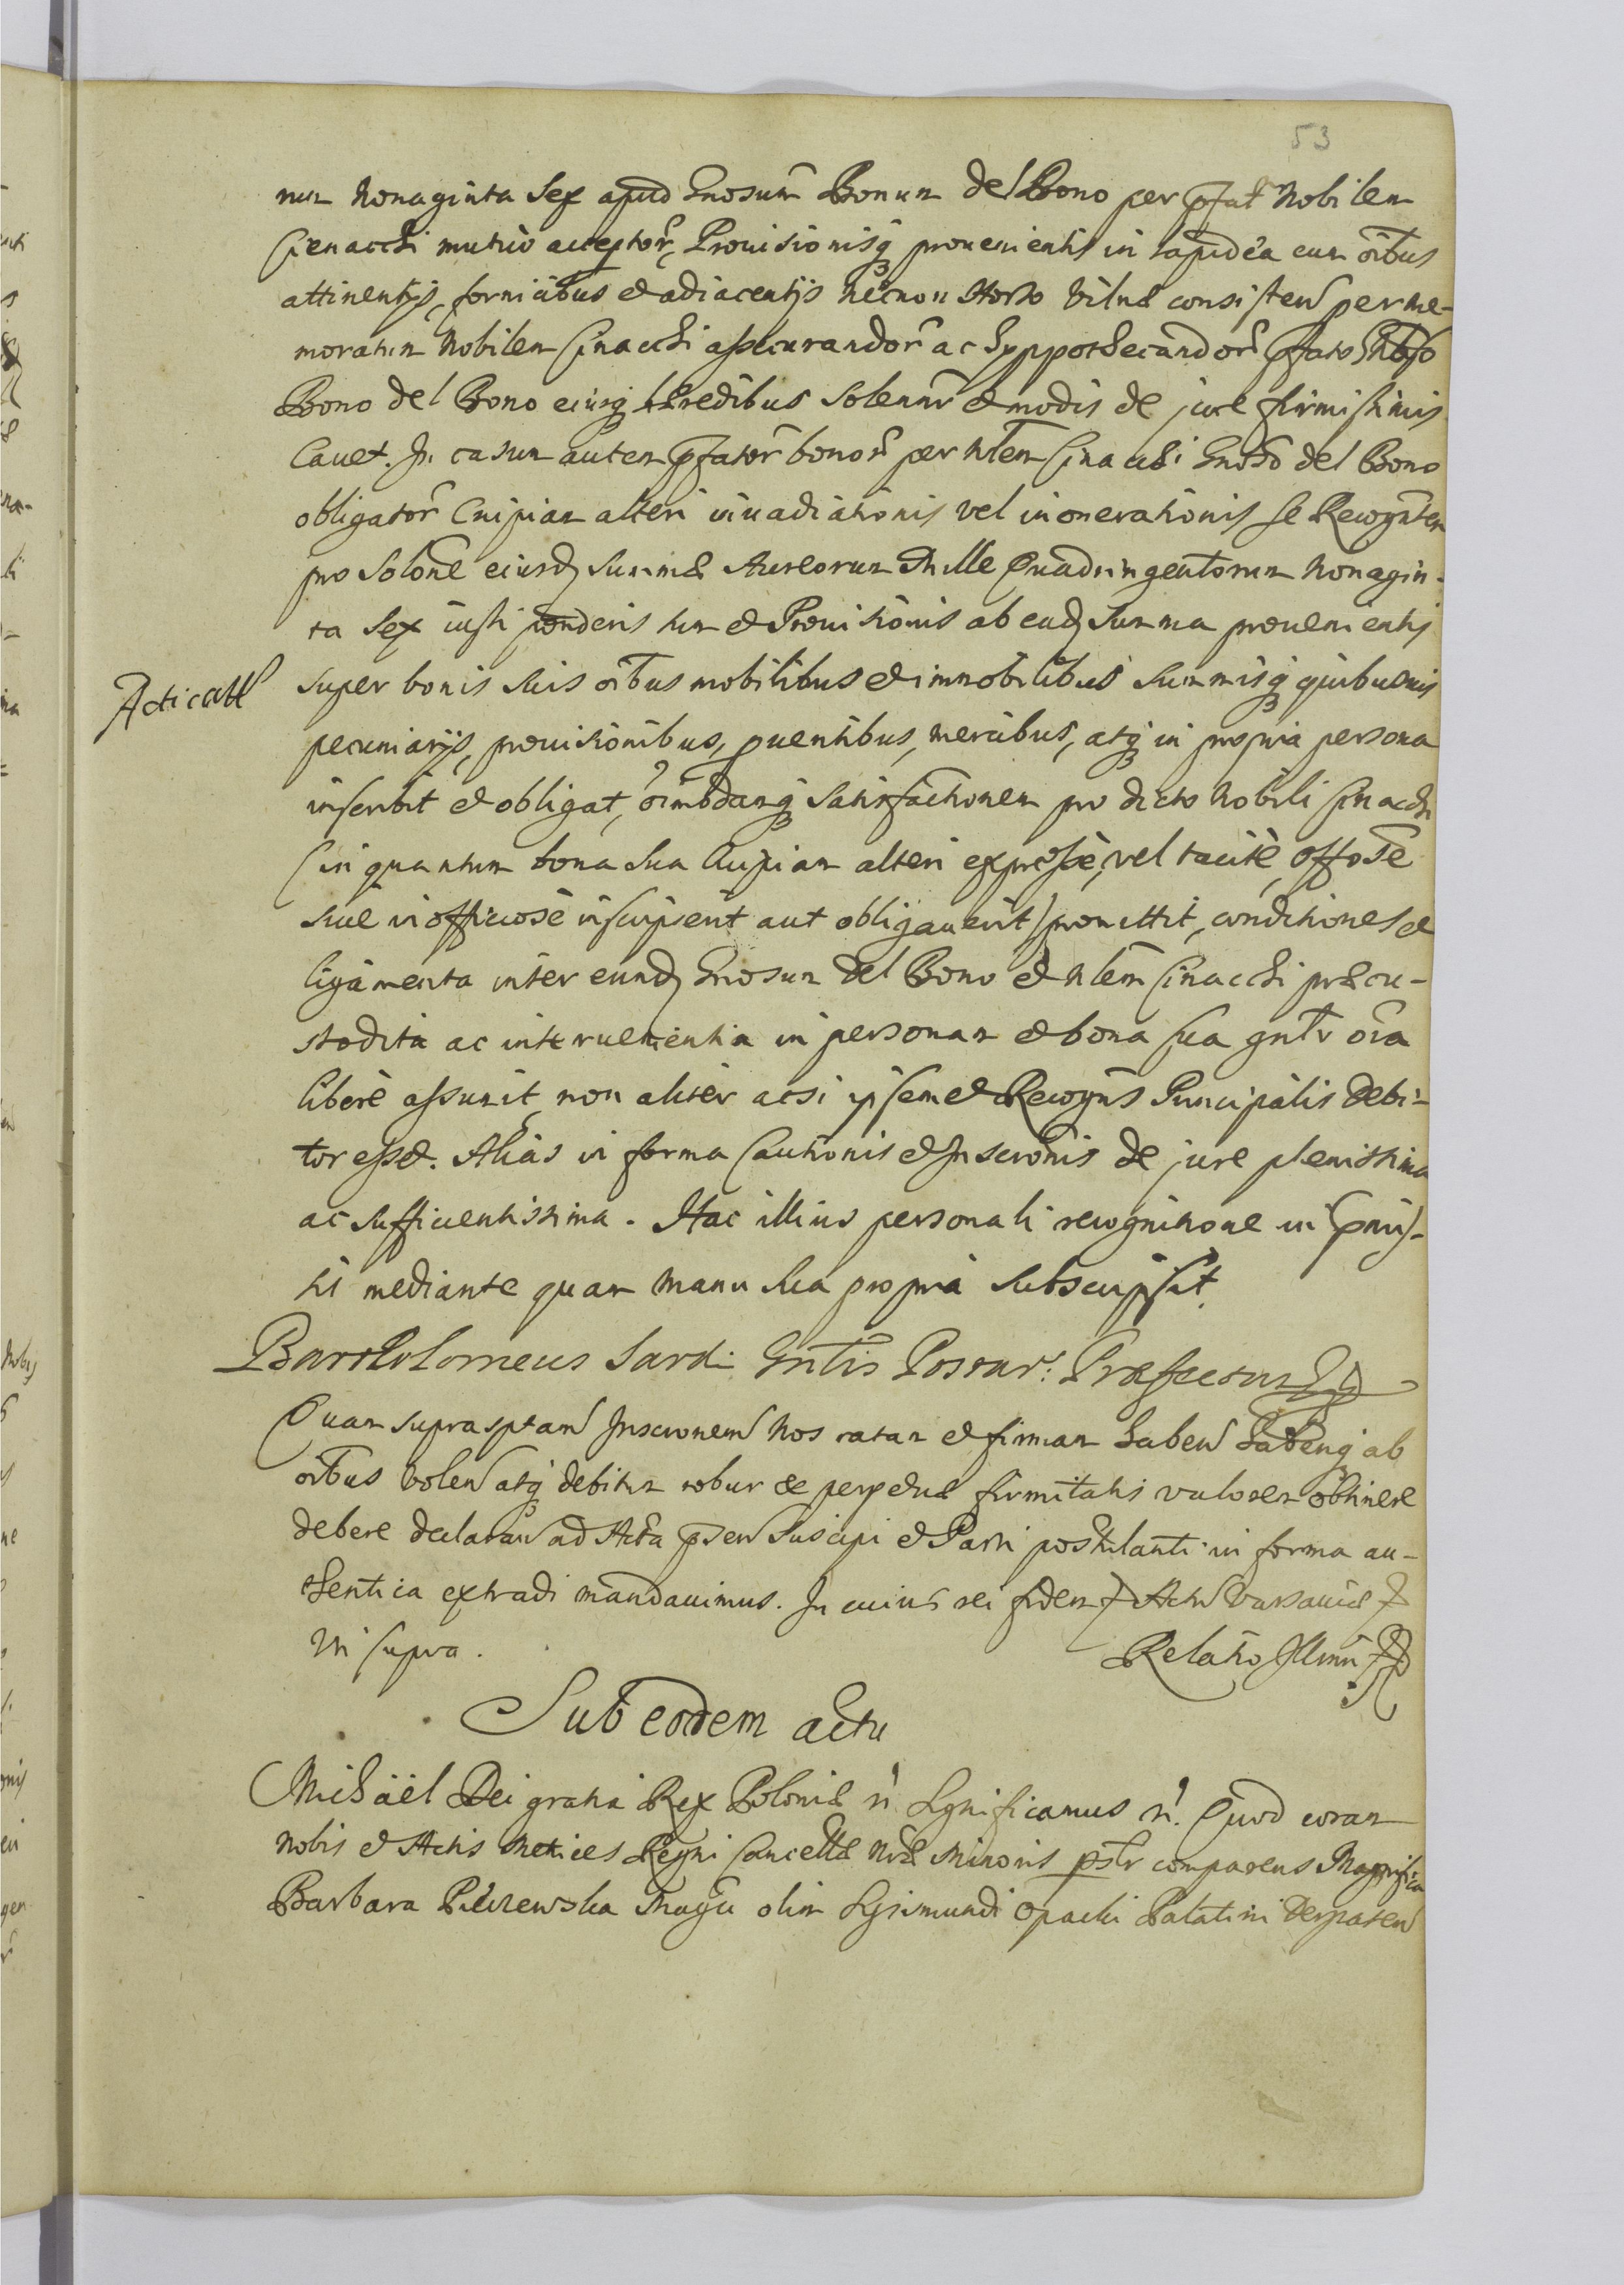 53
rum Nonaginta Sex apud Gnosum Bonum Del Bono per pfat Nobilem
Cenacchi mutuo acceptor, Prouisionisq prouenientis in lapidea cum oibus
attinentijs, fornicibus et adiacentijs necnon Horto Vilnæ consisten per me-
moratum Nobilem Cinacchi assecurandor ac hyppothecandor pfato Gnoso
Bono del Bono eiusq hæredibus solennr et modis de jure firmissimis
Cauet. In casum autem pfator bonor per Nlem Cinacchi Gnoso del Bono
obligator Cuipiam alteri inuadiationis vel inonerationis se Recognten
pro Solone eiusd summæ Aureorum Mille Quadringentorum Nonagin-
ta Sex iusti ponderis tum et Prouisionis ab ead summa prouenientis
Acticatt
super bonis suis oibus mobilibus et immobilibus summisq quibusuis
pecuniarijs, prouisionibus, prouentibus, mercibus, atq in propria persona
inscribit et obligat, oimodamq satisfactionem pro dicto Nobili Cinacchi
(in quantum bona sua cuipiam alteri expresse, vel tacite, offose
siue inofficiose inscripserit aut obligauerit) promittit, conditiones et
ligamenta inter eund Gnosum Del Bono et Nlem Cinacchi præcu-
stodita ac interuenientia in personam et bona sua gnlr oia
libere assumit, non aliter acsi ipsemet Recogns Principalis Debi-
tor esset. Alias in forma Cautionis et Inscronis de jure plenissima
ac sufficientissima. Hac illius personali recognitione in pmis-
sis mediante quam manu sua propria subscripsit
Bartholomeus Sardi Gntis Postar: Præfectus
Quam suprasptam Inscronem Nos ratam et firmam haben haberiq ab
oibus volen atq debitum robur et perpetuæ firmitatis valorem obtinere
debere declaran ad Acta psen suscipi et Parti postulanti in forma au-
thentica extradi mandauimus. In cuius rei fidem Actu Varsauiæ
Ut supra. Relatio Illmi
Sub eodem actu
Michäel Dei gratia Rex Poloniæ Significamus Quod coram
Nobis et Actis Metrices Regni Cancellæ Nræ Minoris pslr comparens Magnifica
Barbara Magci olim Sigismundi Opacki Palatini Derpaten